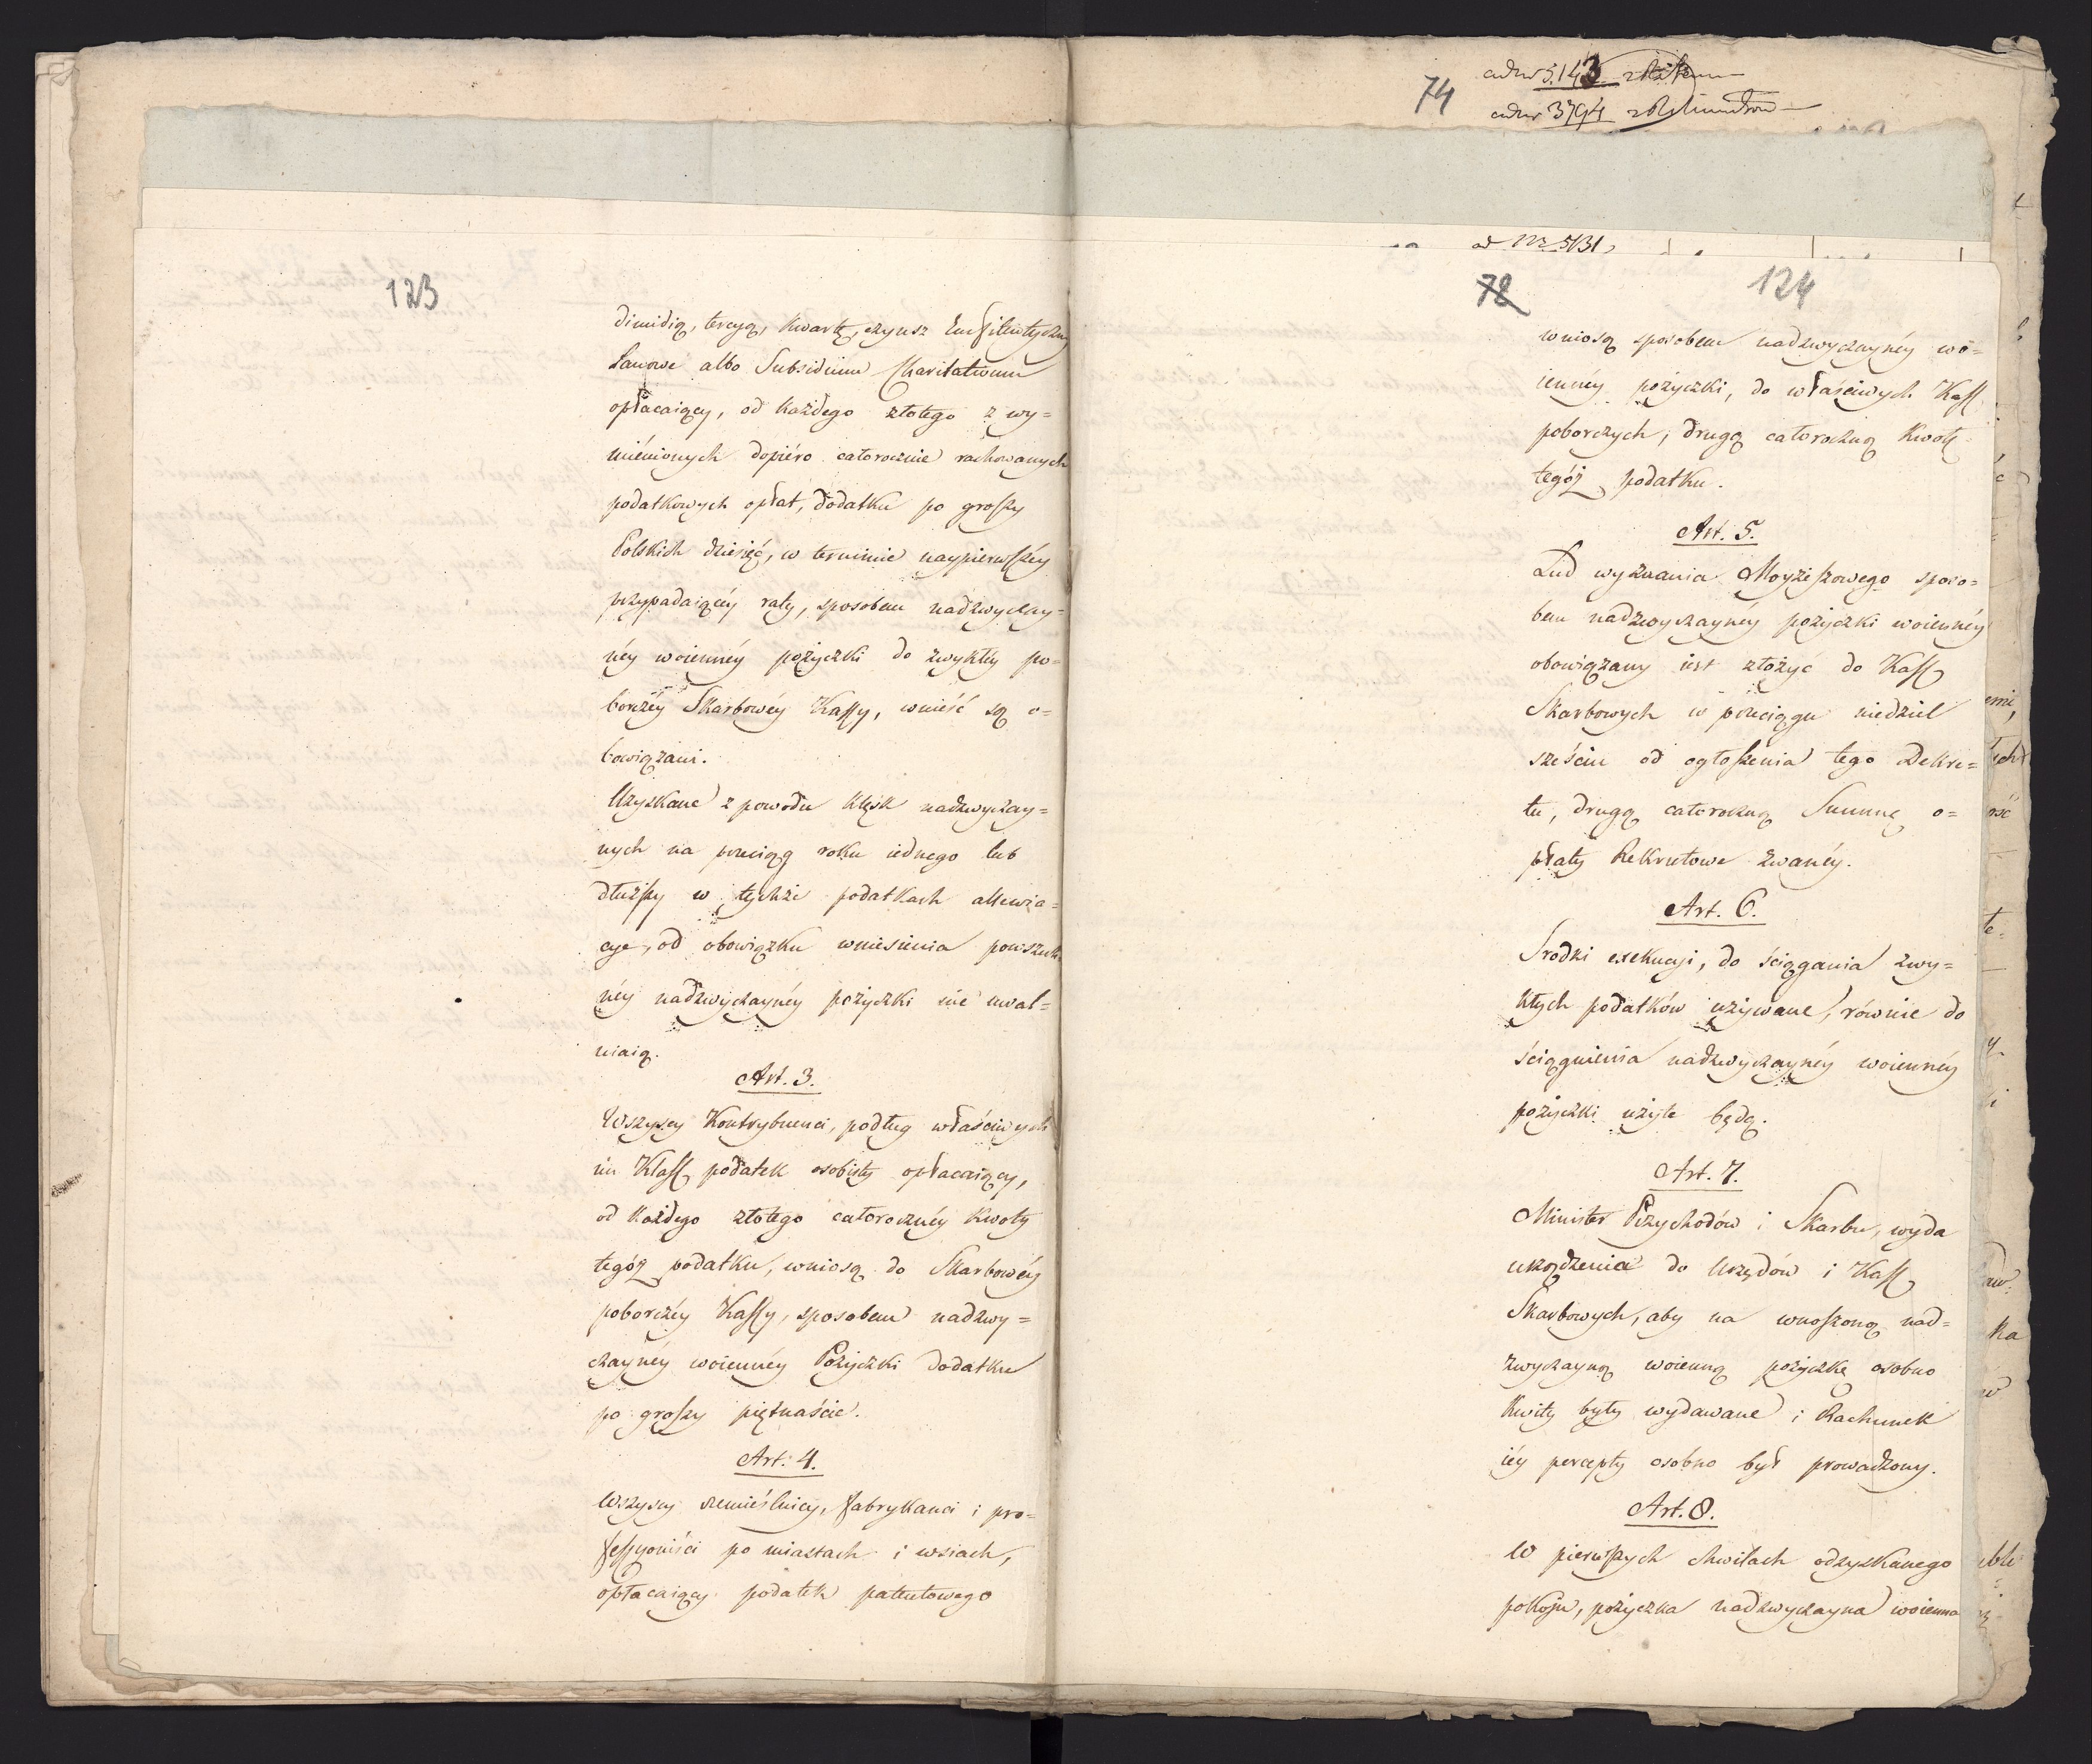 123
dimidią, tercyą, kwartę, czynsz Emfiteutyczny
Łanowe albo Subsidium Charitativum
opłacaiący, od każdego złotego z wy=
mienionych dopiéro całorocznie rachowanych
podatkowych opłat, dodatku po groszy
Polskich dziesięć, w terminie naypierwszéy
przypadaiącéy raty, sposobem nadzwyczay=
néy woiennéy pożyczki do zwykłéy po=
borczéy Skarbowéy Kassy, wnieść są o=
bowiązani.
Uzyskane z powodu klęsk nadzwyczay=
nych na przeciąg roku iednego lub
dłuższy w tychże podatkach allewia=
cye, od obowiązku wniesienia powszech
néy nadzwyczaynéy pożyczki nie uwal=
niaią.
Art. 3.
Wszyscy Kontrybuenci, podług właściwych
im Klass podatek osobisty opłacaiący,
od każdego złotego całorocznéy kwoty
tegóż podatku, wniosą do Skarbowéy
poborczéy Kassy, sposobem nadzwy=
czaynéy woiennéy Pożyczki dodatku
po groszy piętnaście.
Art. 4.
Wszyscy rzemieślnicy, fabrykanci i pro=
fessyoniści po miastach i wsiach,
opłacaiący podatek patentowego
74
5143
3794
ad Nr 5131
78
124
wniosą sposobem nadzwyczaynéy wo=
iennéy pożyczki, do właściwych Kass
poborczych, drugą całoroczną kwotę
tegóż podatku.
Art. 5.
Lud wyznania Moyżeszowego sposo=
bem nadzwyczaynéy pożyczki woiennéy
obowiązany iest złożyć do Kass
Skarbowych w przeciągu niedziel
sześciu od ogłoszenia tego Dekre=
tu, drugą całoroczną Summę o=
płaty Rekrutowe zwanéy.
Art. 6.
Srodki exekucyi, do ściągania zwy=
kłych podatków używane, równie do
ściągnienia nadzwyczaynéy woiennéy
pożyczki użyte będą.
Art. 7.
Minister Przychodów i Skarbu, wyda
urządzenia do Urzędów i Kass
Skarbowych, aby na wnoszoną nad=
zwyczayną woienną pożyczkę osobno
Kwity były wydawane i Rachunek
iéy percepty osobno był prowadzony.
Art. 8.
W pierwszych chwilach odzyskanego
pokoju, pożyczka nadzwyczayna woienna